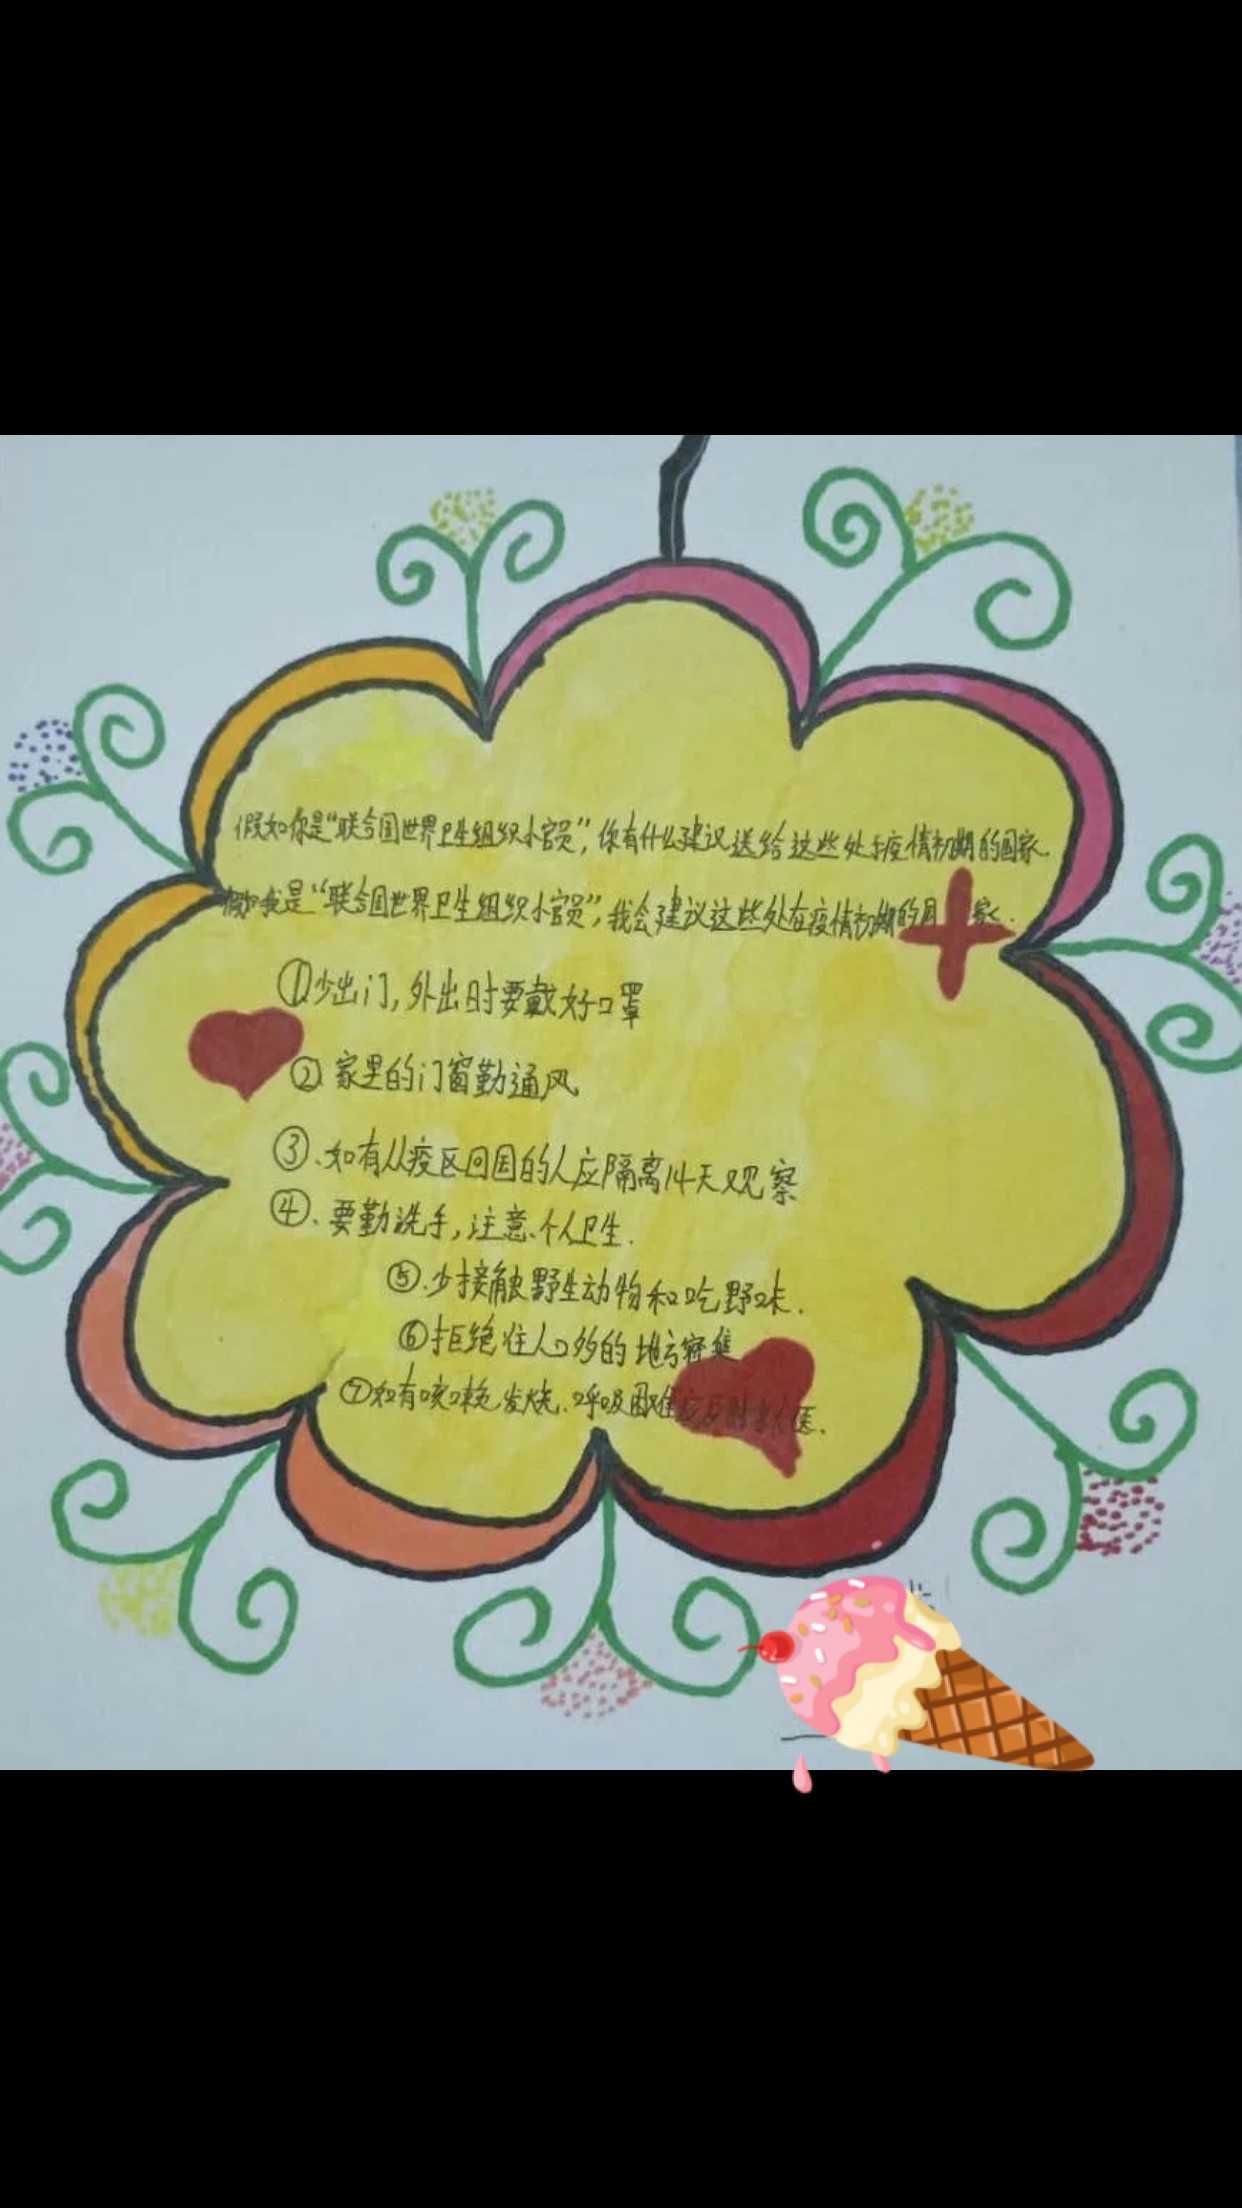 假如你是“联合国世界卫生组织小官员”，你有什么建议送给这些处于疫情初期的国家.
假如我是“联合国世界卫生组织小官员”，我会建议这些处在疫情初期的国家.
①少出门，外出时要戴好口罩
②家里的门窗勤通风
③.如有从疫区回国的人应隔离14天观察
④.要勤洗手，注意个人卫生.
⑤.少接触野生动物和吃野味.
⑥拒绝往人口多的地方密集
⑦如有咳嗽.发烧.呼吸困难应及时就医.